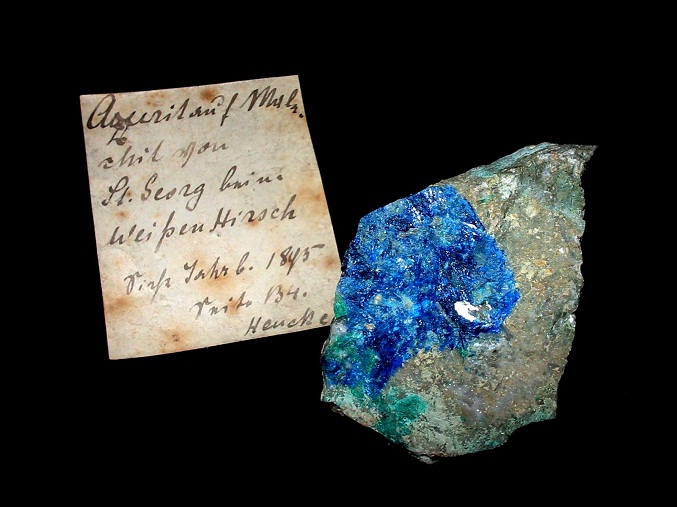 Azurit auf Mala-
chit von
St. Georg beim
Weißen Hirsch
Siehe Jahrb. 1895
Seite 134.
Hencke